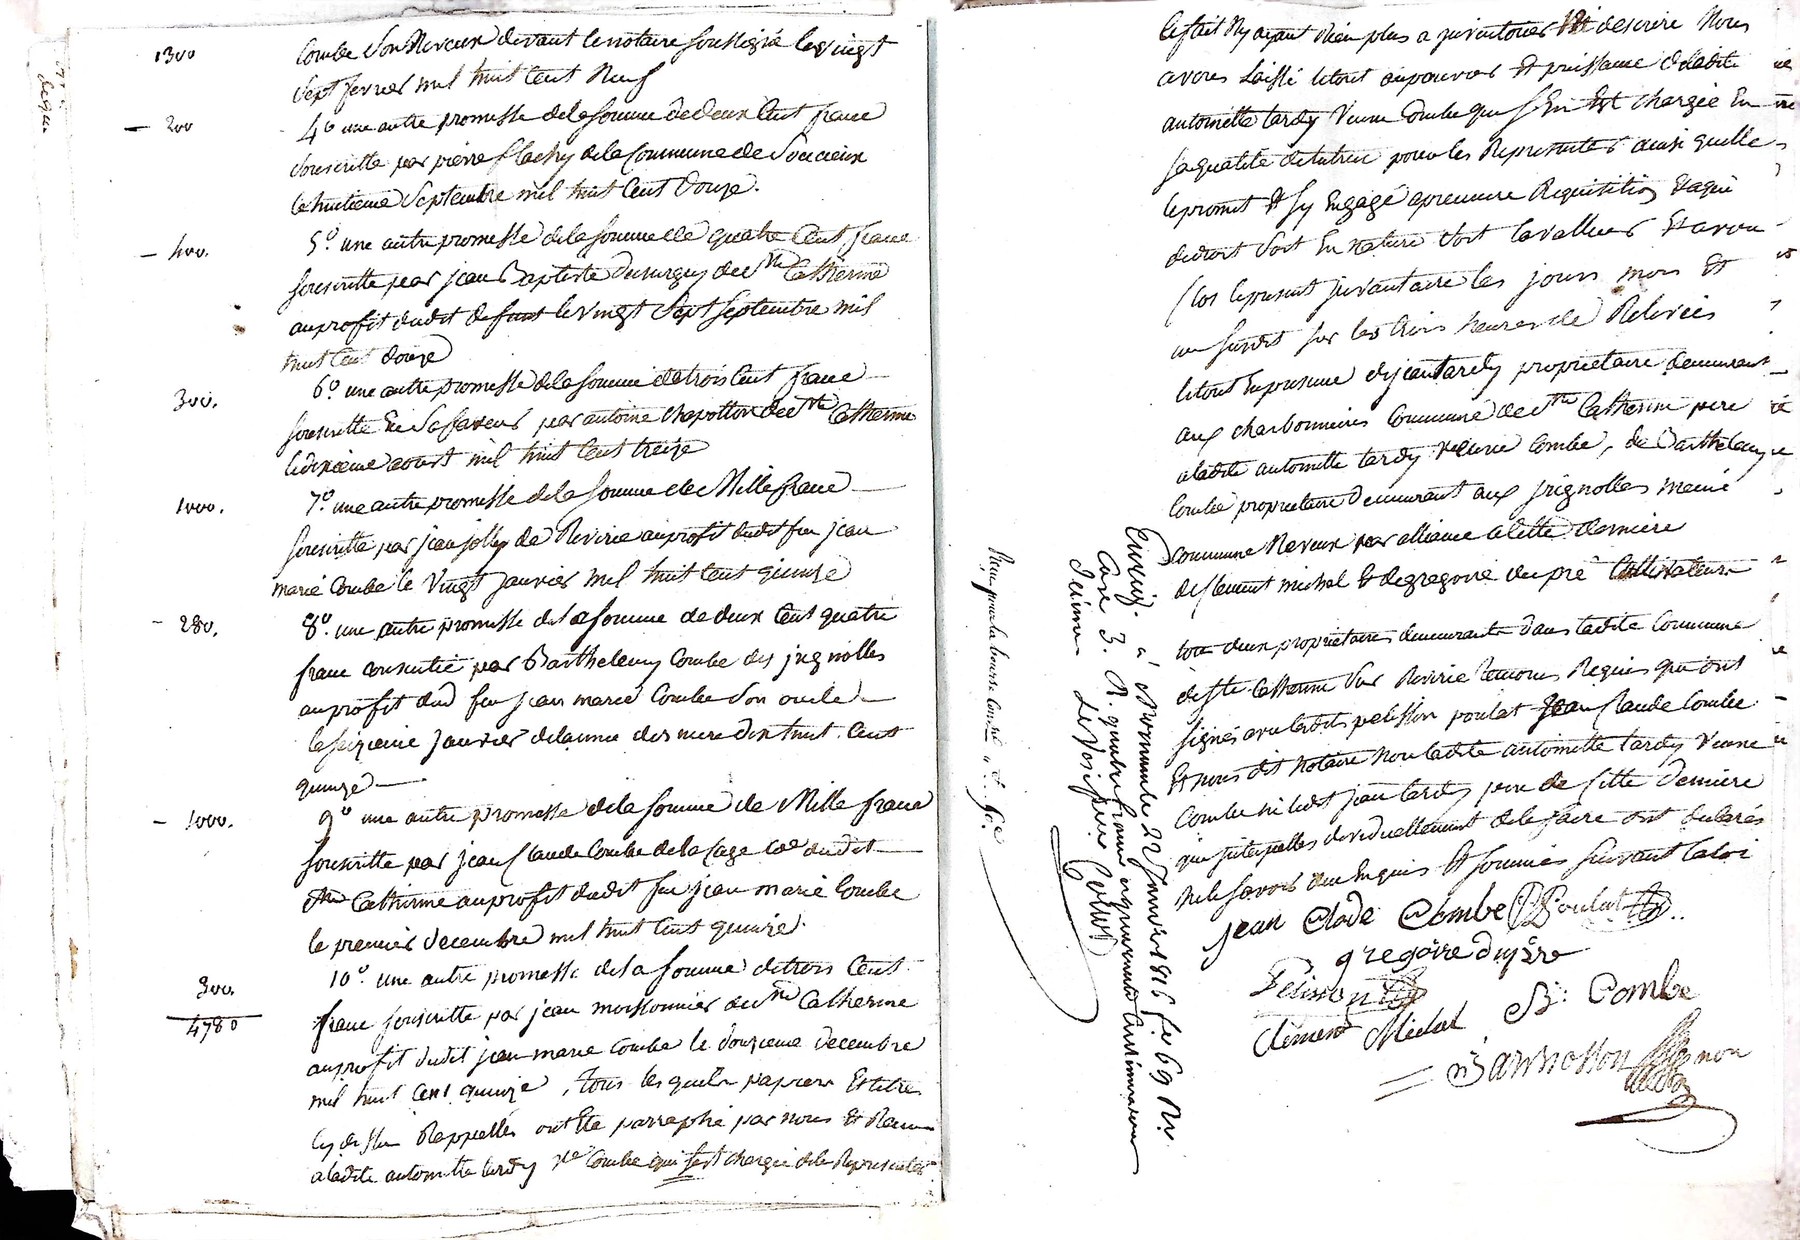 1300
Combe Son Neveux devant le notaire soussigné le vingt
sept fevrier mil huit Cent Neuf
— 200
4º une autre promesse de la somme de deux Cent franc
souscritte par pierre flachy de la Commune de Soucieux
le huitieme Septembre mil huit Cent Douze.
— 400.
5º une autre promesse de la somme de quatre Cent franc
souscritte par jean Baptiste Dumurguy de Ste Catherine
au profit dudit defunt le vingt Sept Septembre mil
huit Cent douze
300.
6º une autre promesse de la somme de trois Cent franc
souscritte En Sa faveur par antoine chapotton de Ste Catherine
le dixieme aoust mil huit Cent treize
1000.
7º une autre promesse de la somme de Mille franc
souscritte par jean jolly de Riverie au profit dudit feu jean
marie Combe le Vingt janvier mil huit Cent quinze
— 280.
8º. une autre promesse de la somme de deux Cent quatre
franc consentie par Barthelemy Combe des jugnolles
au profit dud feu jean marie Combe Son oncle
le seizieme janvier de lannée derniere dix huit Cent
quinze
— 1000.
9º une autre promesse de la somme de Mille franc
souscritte par jean Claude Combe de la Cage Cne dudit
Ste Catherine au profit dudit feu jean marie Combe
le premier decembre mil huit Cent quinze.
300.
4780
10º. une autre promesse de la somme de trois Cent
franc souscritte par jean moissonnier de Ste Catherine
au profit dudit jean marie Combe le douzieme decembre
mil huit Cent quinze, Tous lesquels papiers Et titre
Cy dessu Rappellés ont Eté parraphé par nous Et Remi
a ladite antoinette tardy Ve Combe qui sest chargée de les Representer
Ce fait Ny ayant Rien plus a jnvantorier Et descrire Nous
avons Laissé le tout au pouvoir Et puissance de ladite
antoinette tardy Veuve Combe qui sEn Est chargée En
sa qualité de tutrice pour les Representer ainsi quelle
le promet Et sy Engage a premiere Requisition Et a qui
de droit Soit En nature Soit la valleur Et avons
Clos le present jnvantaire les jours mois Et
an susdit sur les trois heures de Relevées
le tout En presence de jean tardy proprietaire demeurant
aux charbonnieres Commune de Ste Catherine pere
a ladite antoinette tardy veuve Combe, de Barthelemy
Combe proprietaire demeurant aux jugnolles meme
Commune Neveux par alliance a Cette derniere
de Clement michel Et de gregoire dupré Cultivateurs
tou deux proprietaires demeurants dans ladite Commune
de Ste Catherine Sur Riverie temoins Requis qui ont
signés avec lesdits pelisson poulat Jean Claude Combe
Et nous dit notaire Non ladite antoinette tardy Veuve
Combe ni ledit jean tardy pere de Cette derniere
qui jnterpellés jndividuellement de le faire ont declarés
Ne le Savoir de ce Enquis Et Sommés suivant la loi
jean Clode Combe Poulat
gregoire dupre
Pelisson
B: Combe
Clement Michel
Enreg. à Mornant le 22 Janvier 1816 fo 69 Ro.
Case 3. R. quatre francs